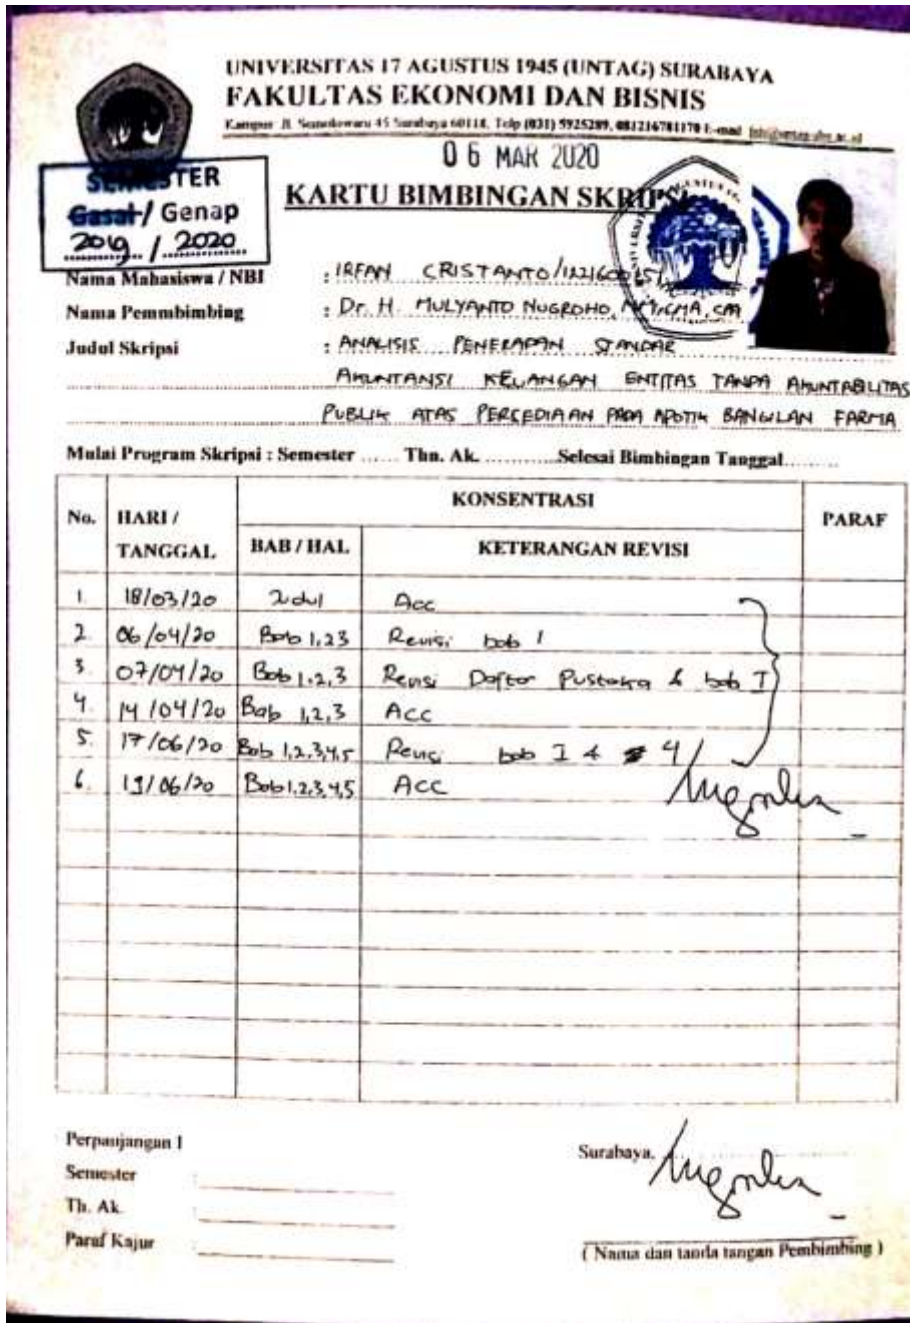 UNIVERSITAS 17 AGUSTUS 1945 (UNTAG) SURABAYA
FAKULTAS EKONOMI DAN BISNIS
Kampus Jl. Semolowaru 45 Surabaya 60118, Telp (031) 5925289, 081216781170 E-mail
06 MAR 2020
SEMESTER
Gasal / Genap
2019 / 2020
KARTU BIMBINGAN SKRIPSI
Nama Mahasiswa / NBI : IRFAN CRISTANTO/
Nama Pemmbimbing : Dr. H. MULYANTO NUGROHO,
Judul Skripsi : ANALISIS PENERAPAN STANDAR
AKUNTANSI KEUANGAN ENTITAS TANPA AKUNTABILITAS
PUBLIK ATAS PERSEDIAAN PADA APOTIK BANGILAN FARMA
Mulai Program Skripsi : Semester ...... Thn. Ak. ............Selesai Bimbingan Tanggal.........
No. HARI / TANGGAL KONSENTRASI PARAF
BAB / HAL KETERANGAN REVISI
1. 18/03/20 Judul Acc
2. 06/04/20 Bab 1,23 Revisi bab 1
3. 07/04/20 Bab 1,2,3 Revisi Daftar Pustaka & bab I
4. 14/04/20 Bab 1,2,3 Acc
5. 17/06/20 Bab 1,2,3,4,5 Revisi bab I & 4
6. 19/06/20 Bab 1,2,3,4,5 Acc
Perpanjangan I
Semester :
Th. Ak. :
Paraf Kajur :
Surabaya,
( Nama dan tanda tangan Pembimbing )